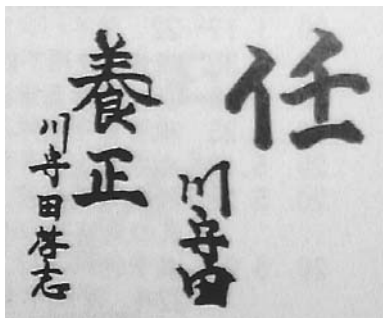 任
川守田
養正
川守田啓志